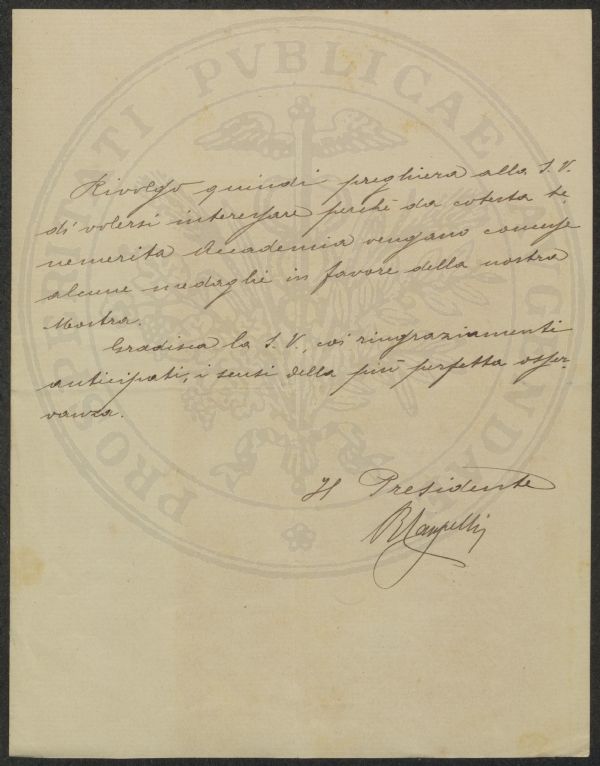 PROSPERITATI PVBLICAE AVGENDAE
Rivolgo quindi preghiera alla S. V.
di volersi interessare perchè da cotesta be
nemerita Accademia vengano concesse
alcune medaglie in favore della nostra
Mostra.
Gradisca la S. V., coi ringraziamenti
anticipati, i sensi della più perfetta osser-
vanza.
Il Presidente